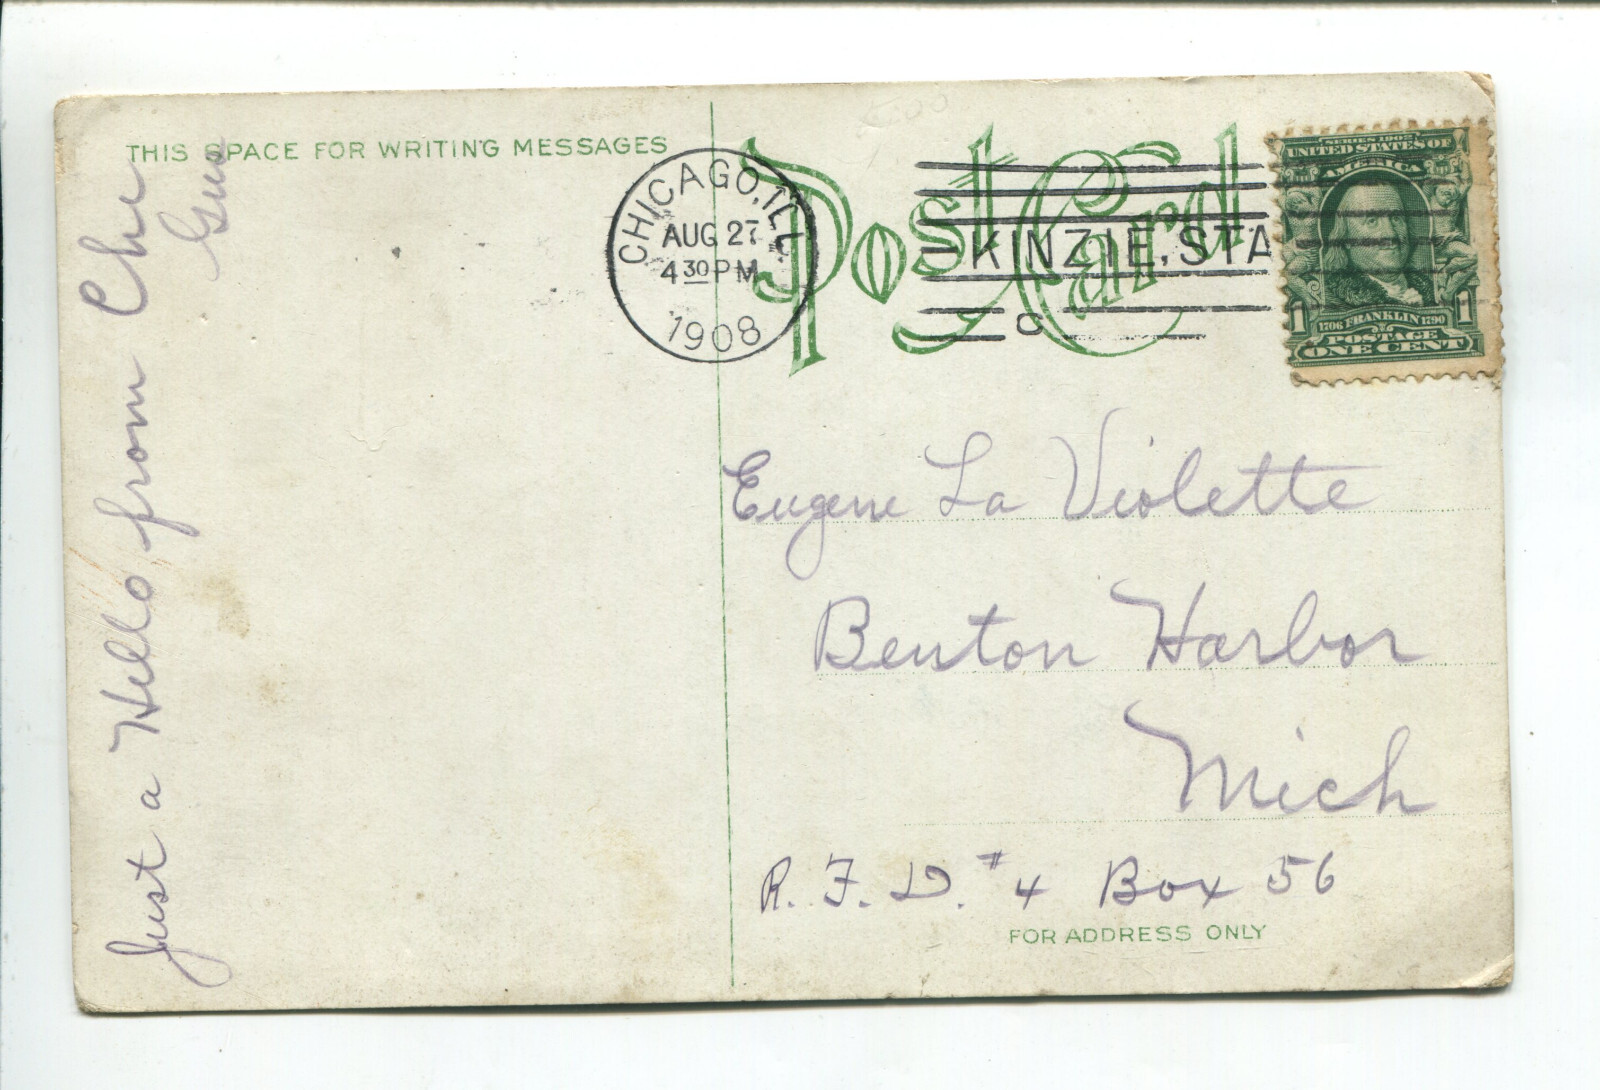 THIS SPACE FOR WRITING MESSAGES
Post Card
CHICAGO, ILL.
AUG 27
4 30 PM
1908
KINZIE, STA
C
SERIES 1902
UNITED STATES OF
AMERICA
1 1
1706 FRANKLIN 1790
POSTAGE
ONE CENT
Just a Hello from Chi
Gus
Eugene La Violette
Benton Harbor
Mich
R. F. D. # 4 Box 56
FOR ADDRESS ONLY